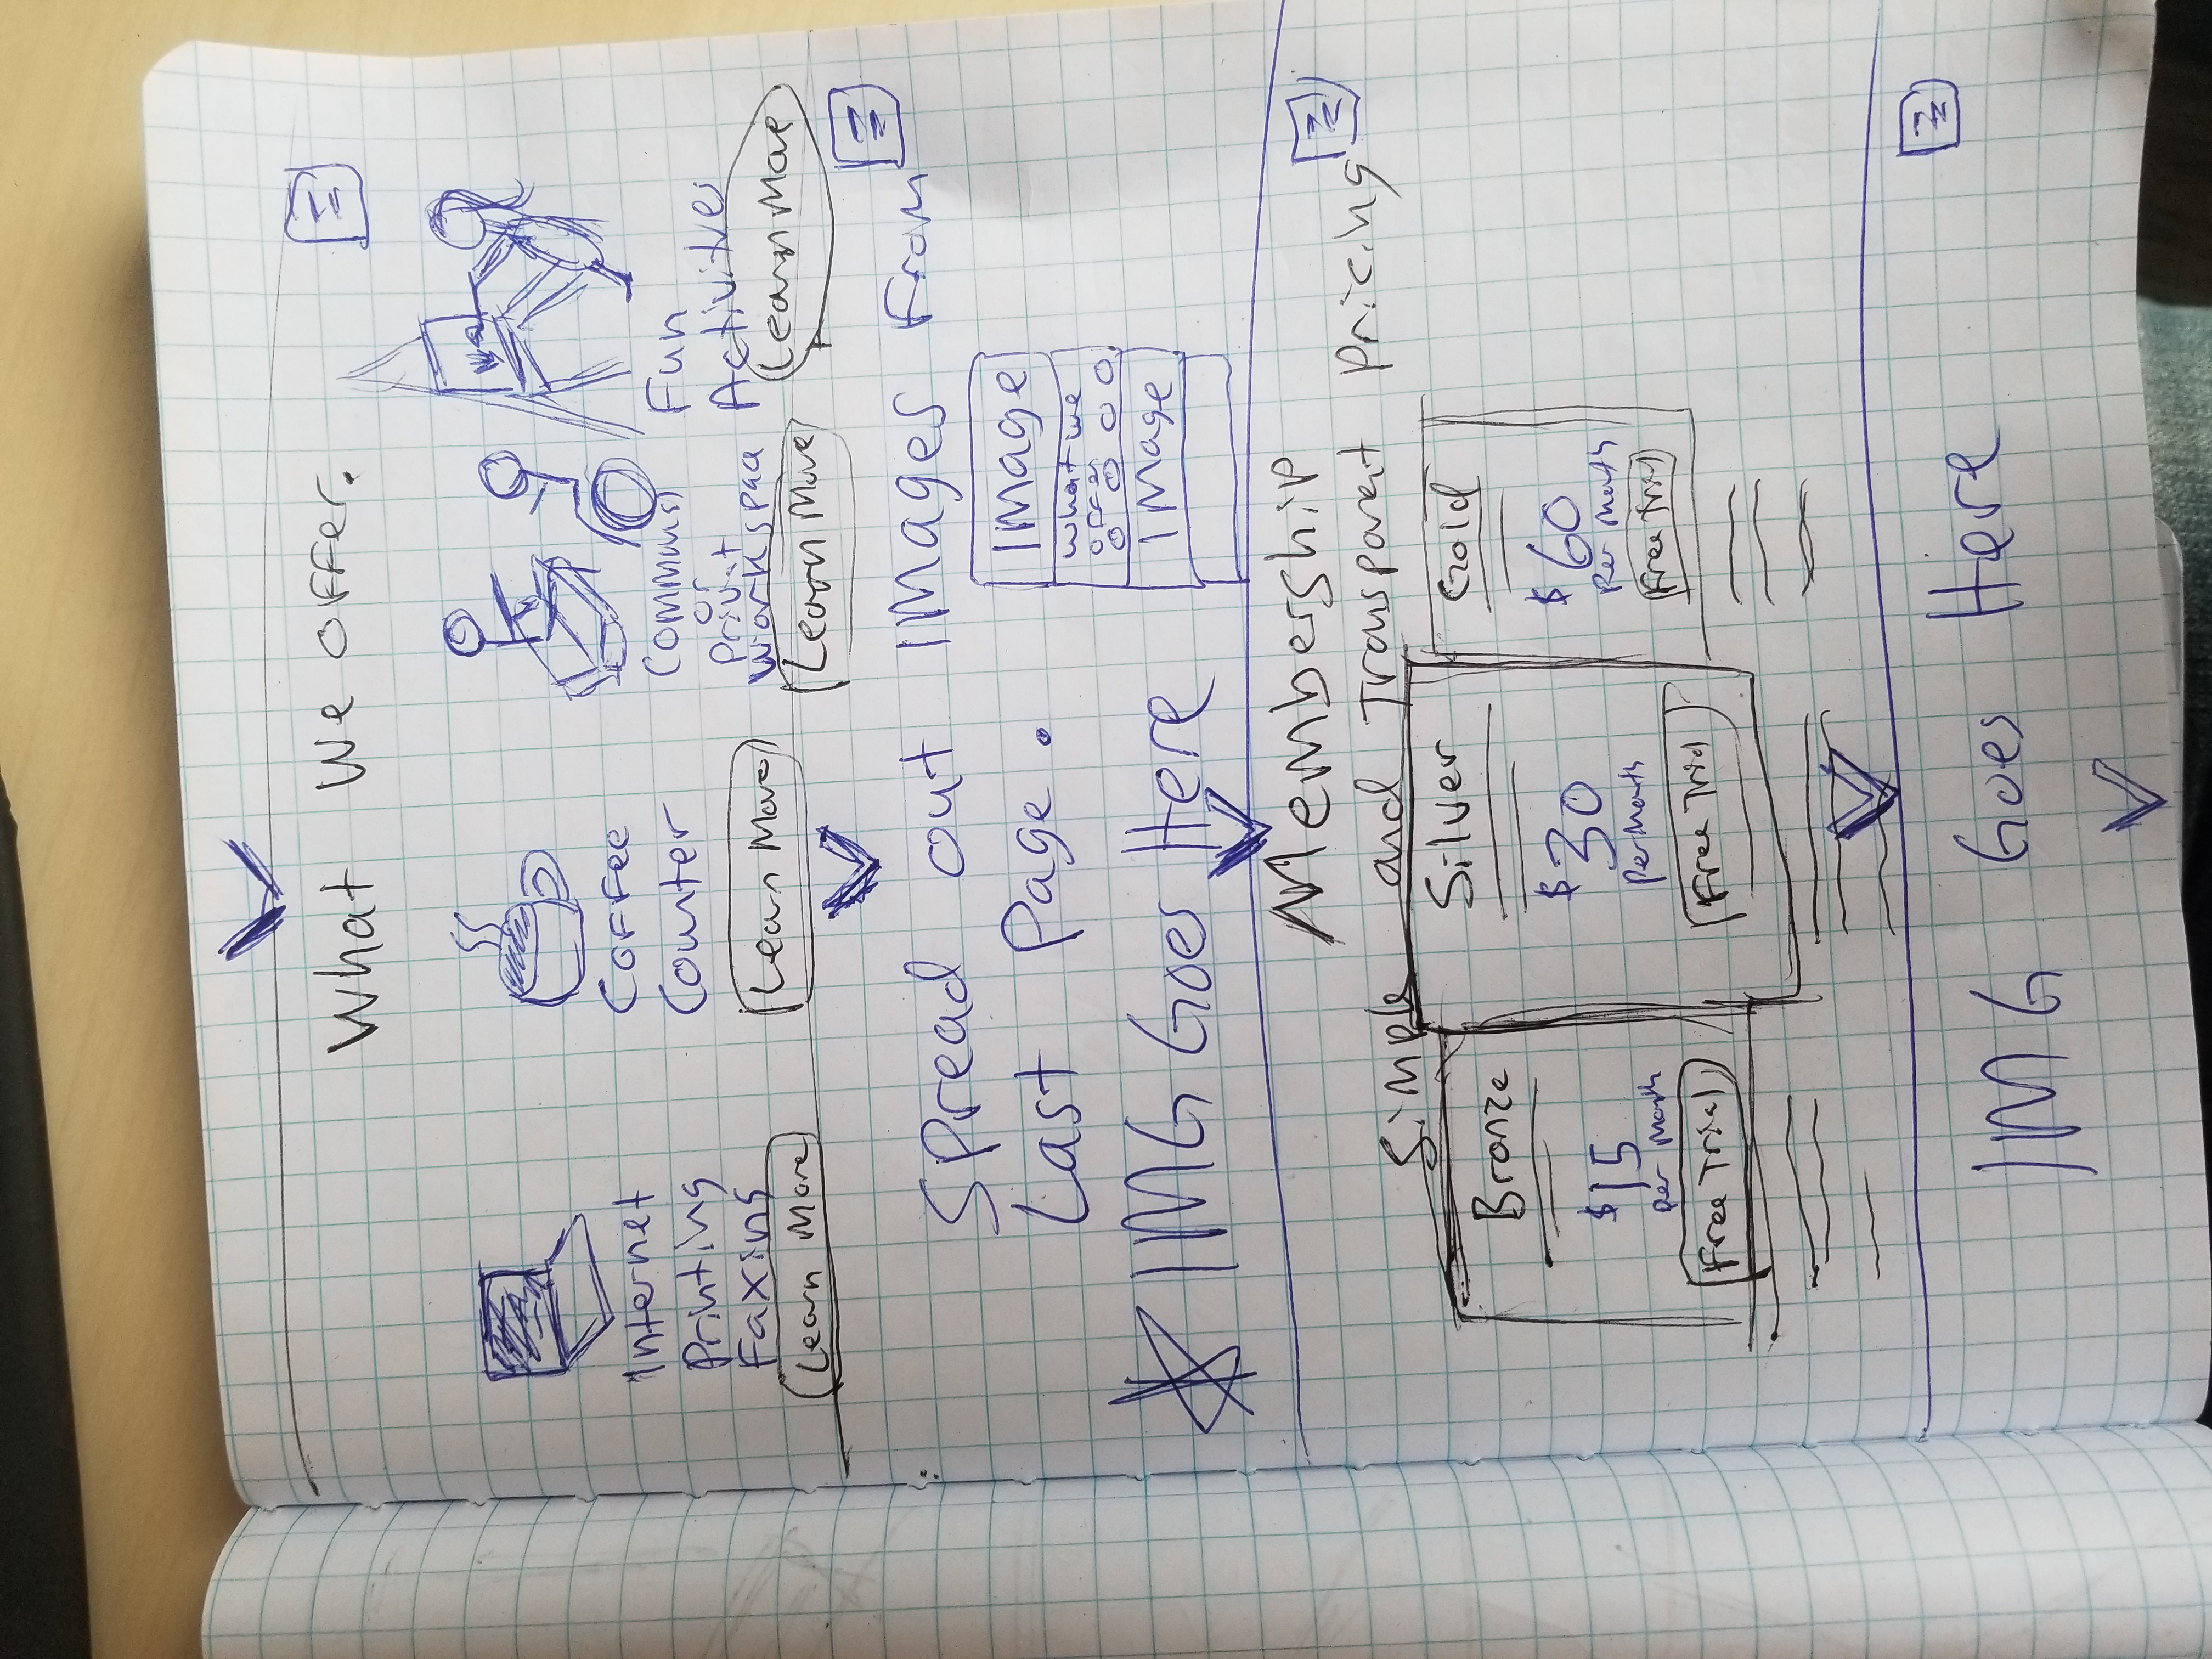 What We offer.
Internet
Printing
Faxing
Learn More
Coffee
Counter
Learn More
or
Privat
Workspace
Learn More
Fun
Activites
Learn More
Spread out IMages From
Last Page.
IMage
what we
offer
IMage
IMG Goes Here
Membership
Simple and Transparent Pricing
Bronze
$15
Per Month
Free Trial
Silver
$30
Per Month
Free Trial
Gold
$60
Per Month
Free Trial
IMG Goes Here